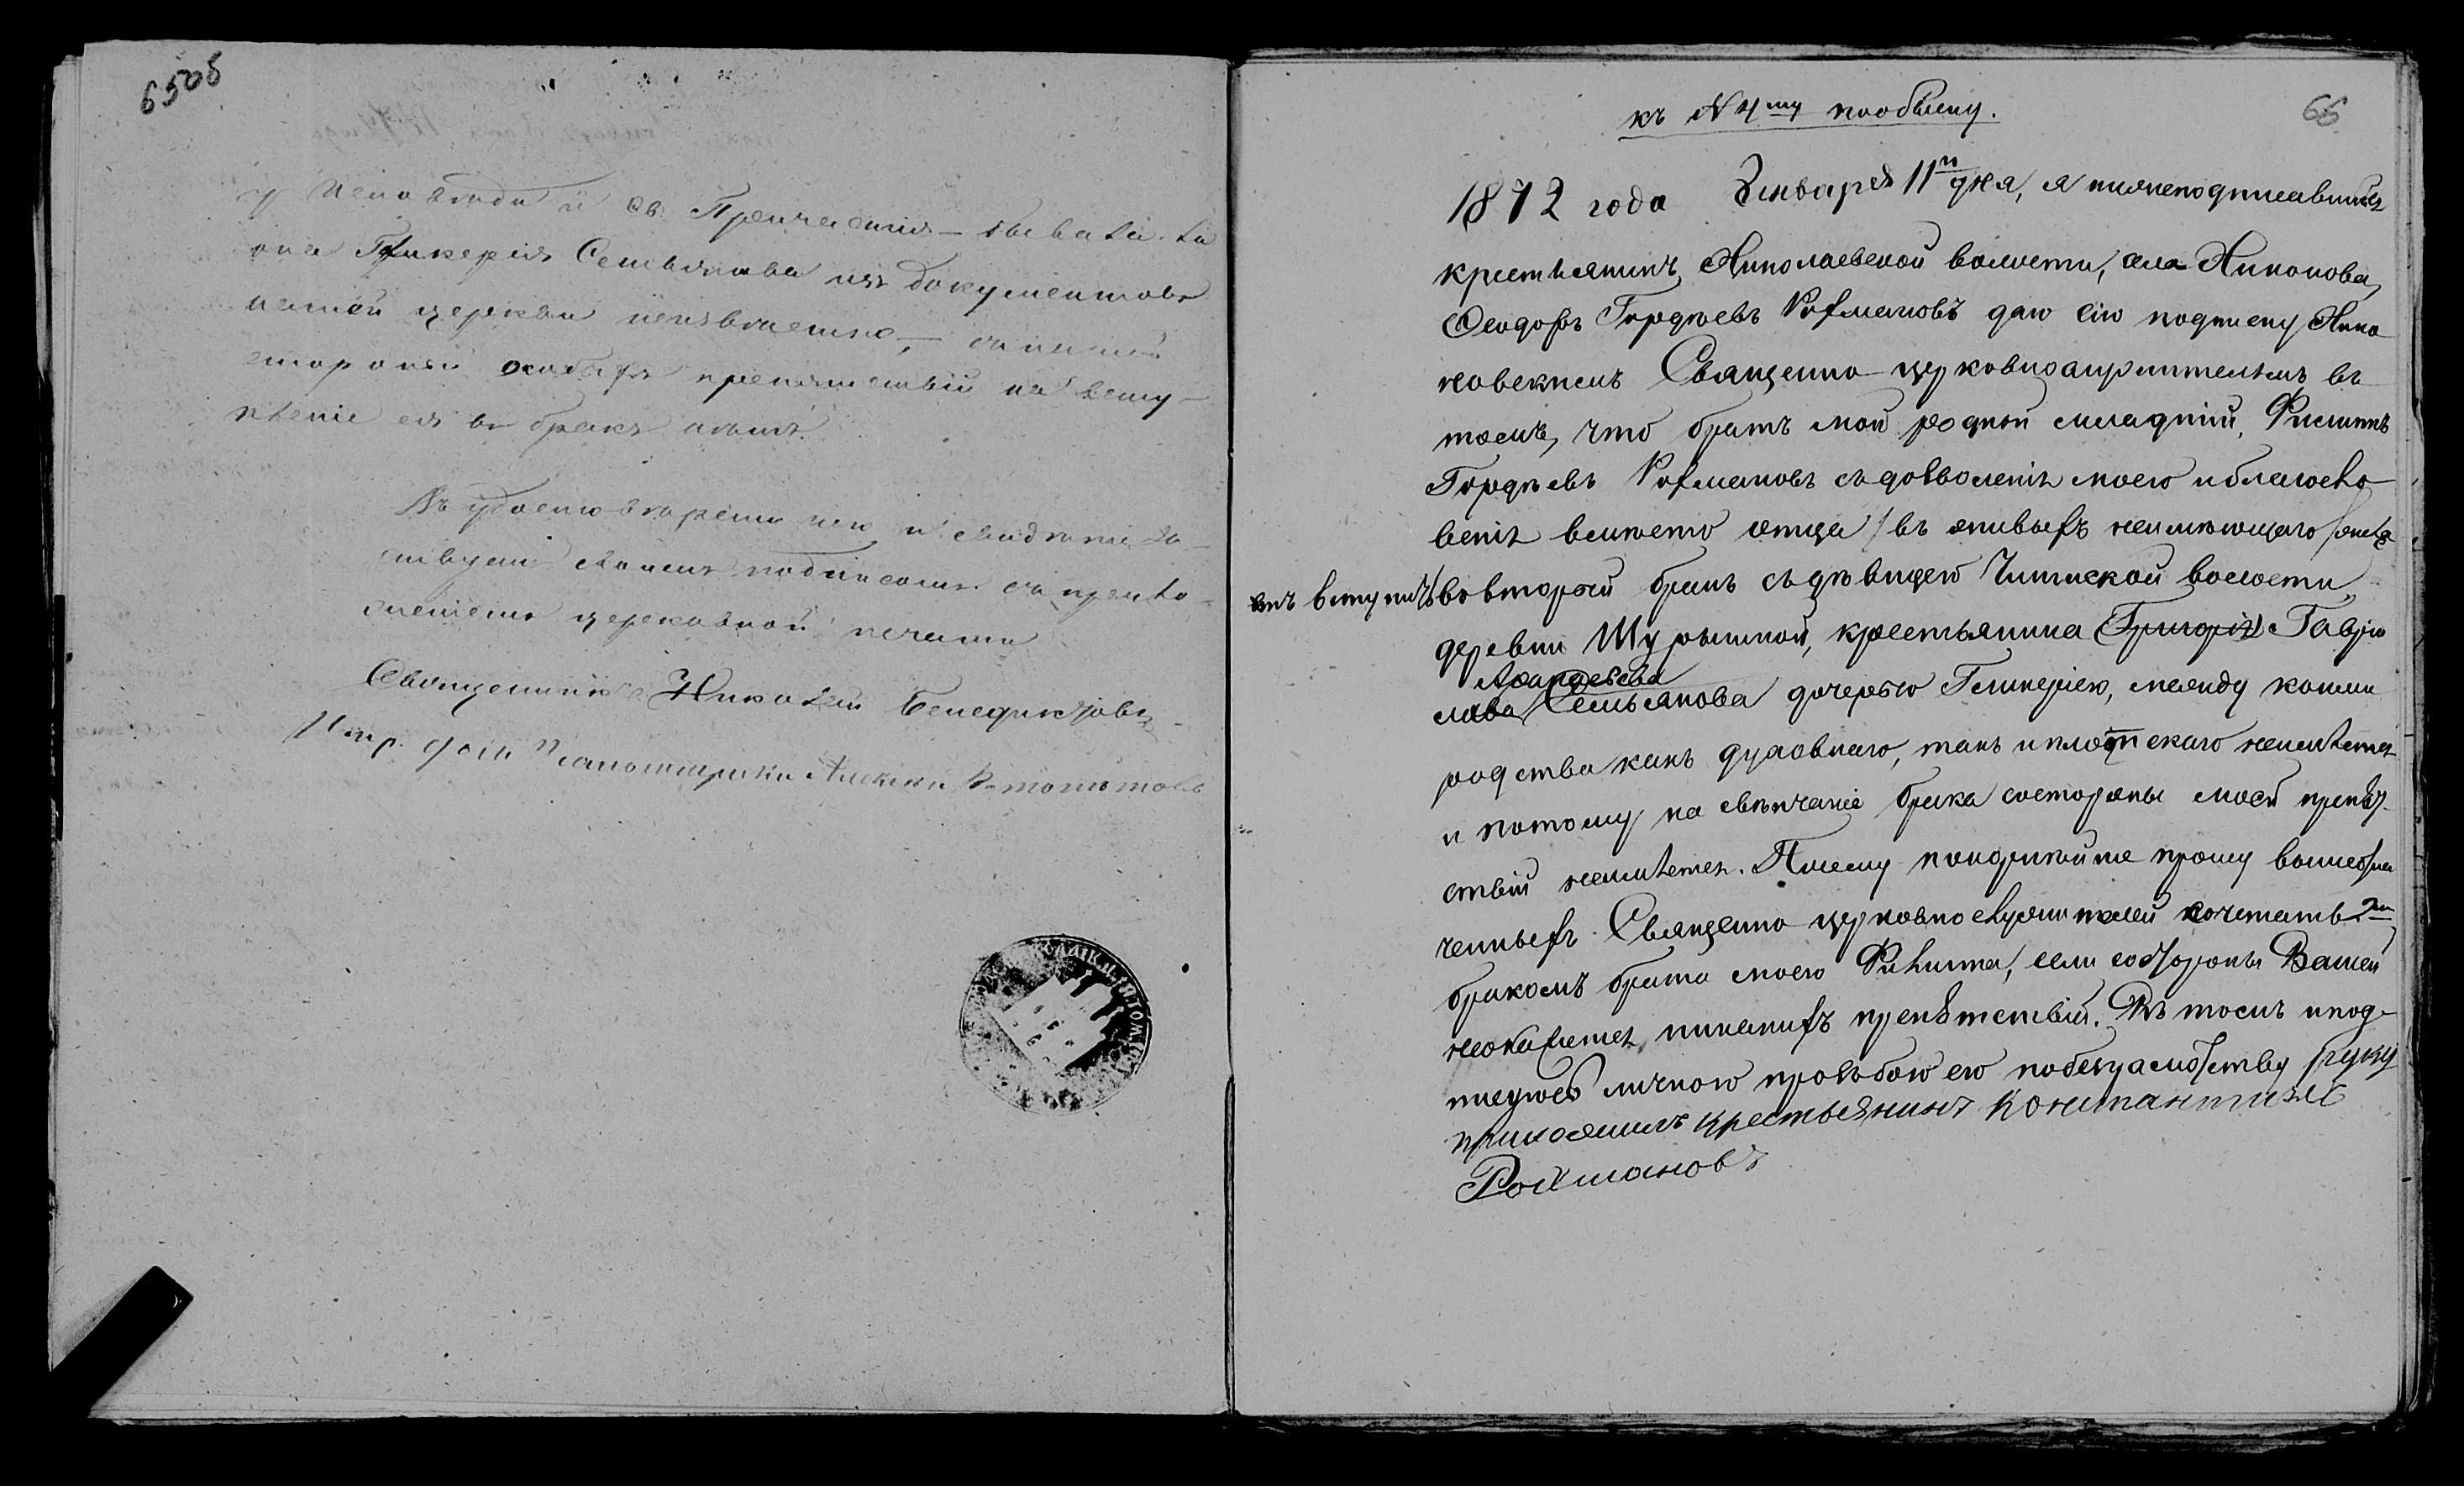 65об
у Исповѣди и Св. Причастія – бывала ли
она Гликерія Семьянова изъ документовъ
нашей церкви неизвѣстно, – съ нашей
стороны особыхъ препятствій на всту-
пленіе ея въ бракъ нѣтъ.
Въ удостовѣреніи чего и свидѣтель-
ствуемъ своимъ подписомъ съ прило-
женіемъ церковной печати
Священникъ Николай Бенедиктовъ
Испр. долж. Псаломщика Алексѣй
66
къ N 4му пообыску.
1872 года Января 11го дня, я нижеподписавшійся
крестьянинъ, Николаевской волости, села Никонова,
Феодоръ Гордѣевъ Рохмановъ даю сію подписку Нико
новскимъ Священно-церковнослужителямъ въ
томъ, что братъ мой родной младшій, Филиппъ
Гордѣевъ Рохмановъ съ дозволенія моего и благосло
венія вмѣсто отца / въ живыхъ неимѣющаго / жела
етъ вступить во второй бракъ съ дѣвицею Читинской волости,
деревни Шурышной, крестьянина Григорія Гаврі
Авандѣева
лова Семьянова дочерью Гликеріею, между коими
родства какъ духовнаго, такъ и плотскаго неимѣется
и потому на свѣнчаніе брака состороны моей препят
ствій неимѣется. Посему покорнѣйше прошу вышеозна
ченныхъ Священно-церковнослужителей сочетать 2мъ
бракомъ брата моего Филиппа, если состороны Вашей
неокажется никакихъ препятствій. Въ томъ и под-
писуюсь личною просьбою его по безграмотству руку
приложилъ крестьянинъ Константинъ
Рохмановъ